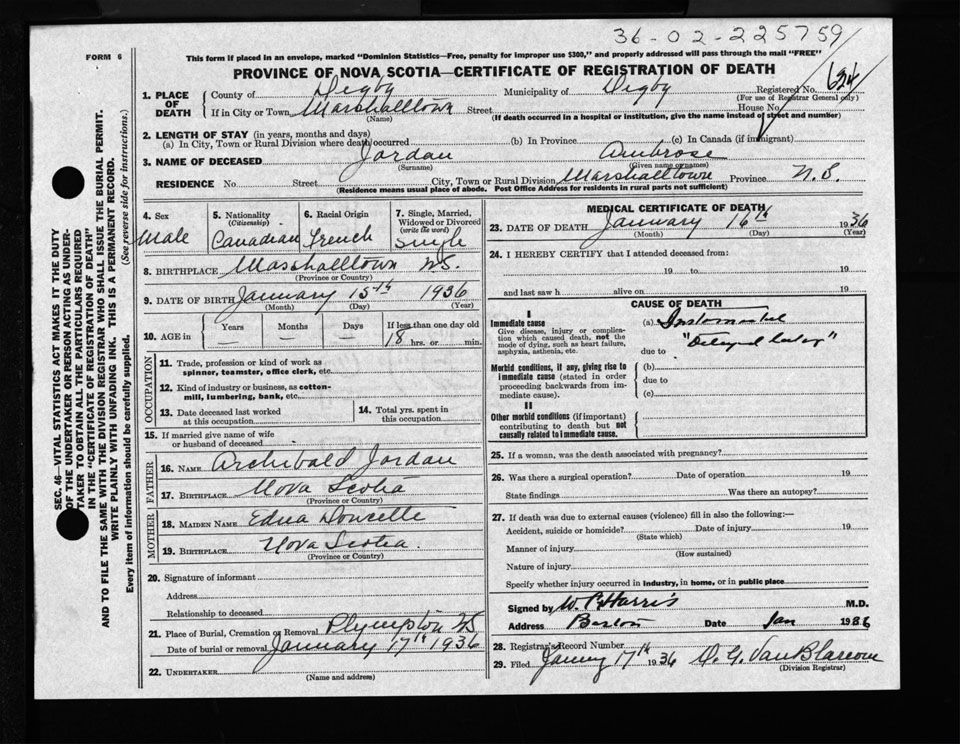 36-02-225759
FORM 6
This form if placed in an envelope, marked "Dominion Statistics—Free, penalty for improper use $300," and properly addressed will pass through the mail "FREE"
PROVINCE OF NOVA SCOTIA—CERTIFICATE OF REGISTRATION OF DEATH
624
1. PLACE OF DEATH
County of Digby Municipality of Digby Registered No.
(For use of Registrar General only)
If in City or Town Marshalltown Street House No.
(Name) (If death occurred in a hospital or institution, give the name instead of street and number)
2. LENGTH OF STAY (in years, months and days)
(a) In City, Town or Rural Division where death occurred (b) In Province (c) In Canada (if immigrant)
3. NAME OF DECEASED Jordan Ambrose
(Surname) (Given name or names)
RESIDENCE No. Street City, Town or Rural Division Marshalltown Province N.S.
(Residence means usual place of abode. Post Office Address for residents in rural parts not sufficient)
4. Sex
Male
5. Nationality
(Citizenship)
Canadian
6. Racial Origin
French
7. Single, Married, Widowed or Divorced
(write the word)
Single
8. BIRTHPLACE Marshalltown NS.
(Province or Country)
9. DATE OF BIRTH January 15th 1936
(Month) (Day) (Year)
10. AGE in
Years Months Days If less than one day old
— — — 18 hrs. or min.
OCCUPATION
11. Trade, profession or kind of work as
spinner, teamster, office clerk, etc.
12. Kind of industry or business, as cotton-
mill, lumbering, bank, etc.
13. Date deceased last worked
at this occupation
14. Total yrs. spent in
this occupation
15. If married give name of wife
or husband of deceased
FATHER
16. NAME Archibald Jordan
17. BIRTHPLACE Nova Scotia
(Province or Country)
MOTHER
18. MAIDEN NAME Edna Doucette
19. BIRTHPLACE Nova Scotia.
(Province or Country)
20. Signature of informant
Address
Relationship to deceased
21. Place of Burial, Cremation or Removal Plympton NS
Date of burial or removal January 17th 1936
22. UNDERTAKER
(Name and address)
MEDICAL CERTIFICATE OF DEATH
23. DATE OF DEATH January 16th 1936
(Month) (Day) (Year)
24. I HEREBY CERTIFY that I attended deceased from:
19 to 19
and last saw h alive on 19
CAUSE OF DEATH
I
Immediate cause
Give disease, injury or complica-
tion which caused death, not the
mode of dying, such as heart failure,
asphyxia, asthenia, etc.
(a)
due to
Morbid conditions, if any, giving rise to
immediate cause (stated in order
proceeding backwards from im-
mediate cause).
(b)
due to
(c)
II
Other morbid conditions (if important)
contributing to death but not
causally related to immediate cause.
25. If a woman, was the death associated with pregnancy?
26. Was there a surgical operation? Date of operation 19
State findings Was there an autopsy?
27. If death was due to external causes (violence) fill in also the following:—
Accident, suicide or homicide? Date of injury 19
(State which)
Manner of injury
(How sustained)
Nature of injury
Specify whether injury occurred in industry, in home, or in public place
Signed by W. C. Harris M.D.
Address Date Jan 1936
28. Registrar's Record Number
29. Filed January 17th 1936 D. G. VanBlarcom
(Division Registrar)
SEC. 46—VITAL STATISTICS ACT MAKES IT THE DUTY
OF THE UNDERTAKER OR PERSON ACTING AS UNDER-
TAKER TO OBTAIN ALL THE PARTICULARS REQUIRED
IN THE "CERTIFICATE OF REGISTRATION OF DEATH"
AND TO FILE THE SAME WITH THE DIVISION REGISTRAR WHO SHALL ISSUE THE BURIAL PERMIT.
WRITE PLAINLY WITH UNFADING INK. THIS IS A PERMANENT RECORD.
Every item of information should be carefully supplied. (See reverse side for instructions.)